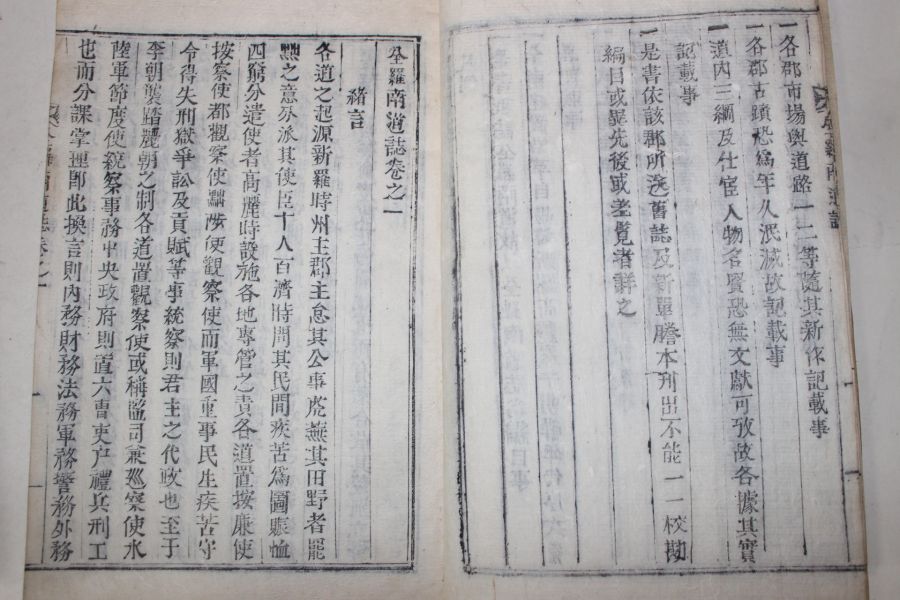 一各郡市場與道路一二等隨其新作記載事
一各郡古蹟恐爲年久泯滅故記載事
一道内三綱及仕宦人物名賢恐無文獻可攷故各據其實
記載事
一是書依該郡所送舊誌及新單謄本刋出不能一一校勘
編目或畢先後或差覽者詳之
全羅南道誌卷之一
緒言
各道之起源新羅時州主郡主怠其公事虎蕪其田野者罷
黜之意分派其使臣十人百濟時問其民間疾苦爲圖賑恤
四窮分遣使者高麗時設施各地專管之責各道置按廉使
按察使都觀察使黜陟使觀察使而軍國重事民生疾苦守
令得失刑獄爭訟及貢賦等事統察則君主之代政也至于
李朝襲踏麗朝之制各道置觀察使或稱監司兼巡察使水
陸軍節度使統察事務中央政府則置六曹吏户禮兵刑工
也而分課掌理卽此換言則内務財務法務軍務警務外務